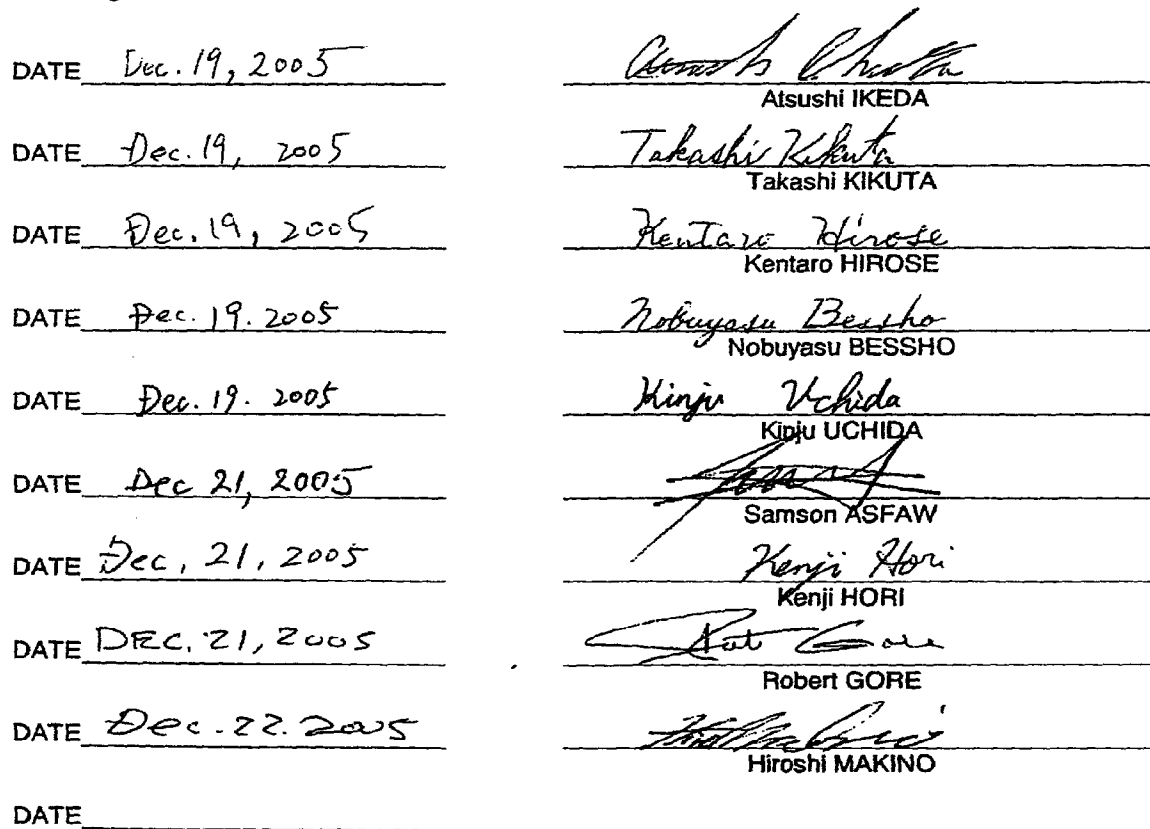 DATE Dec. 19, 2005
Atsushi IKEDA
DATE Dec. 19, 2005 Takashi Kikuta
Takashi KIKUTA
DATE Dec. 19, 2005 Kentaro Hirose
Kentaro HIROSE
DATE Dec. 19. 2005 Nobuyasu Bessho
Nobuyasu BESSHO
DATE Dec. 19. 2005 Kinju Uchida
Kinju UCHIDA
DATE Dec 21, 2005
Samson ASFAW
DATE Dec, 21, 2005 Kenji Hori
Kenji HORI
DATE DEC. 21, 2005
Robert GORE
DATE Dec. 22. 2005
Hiroshi MAKINO
DATE